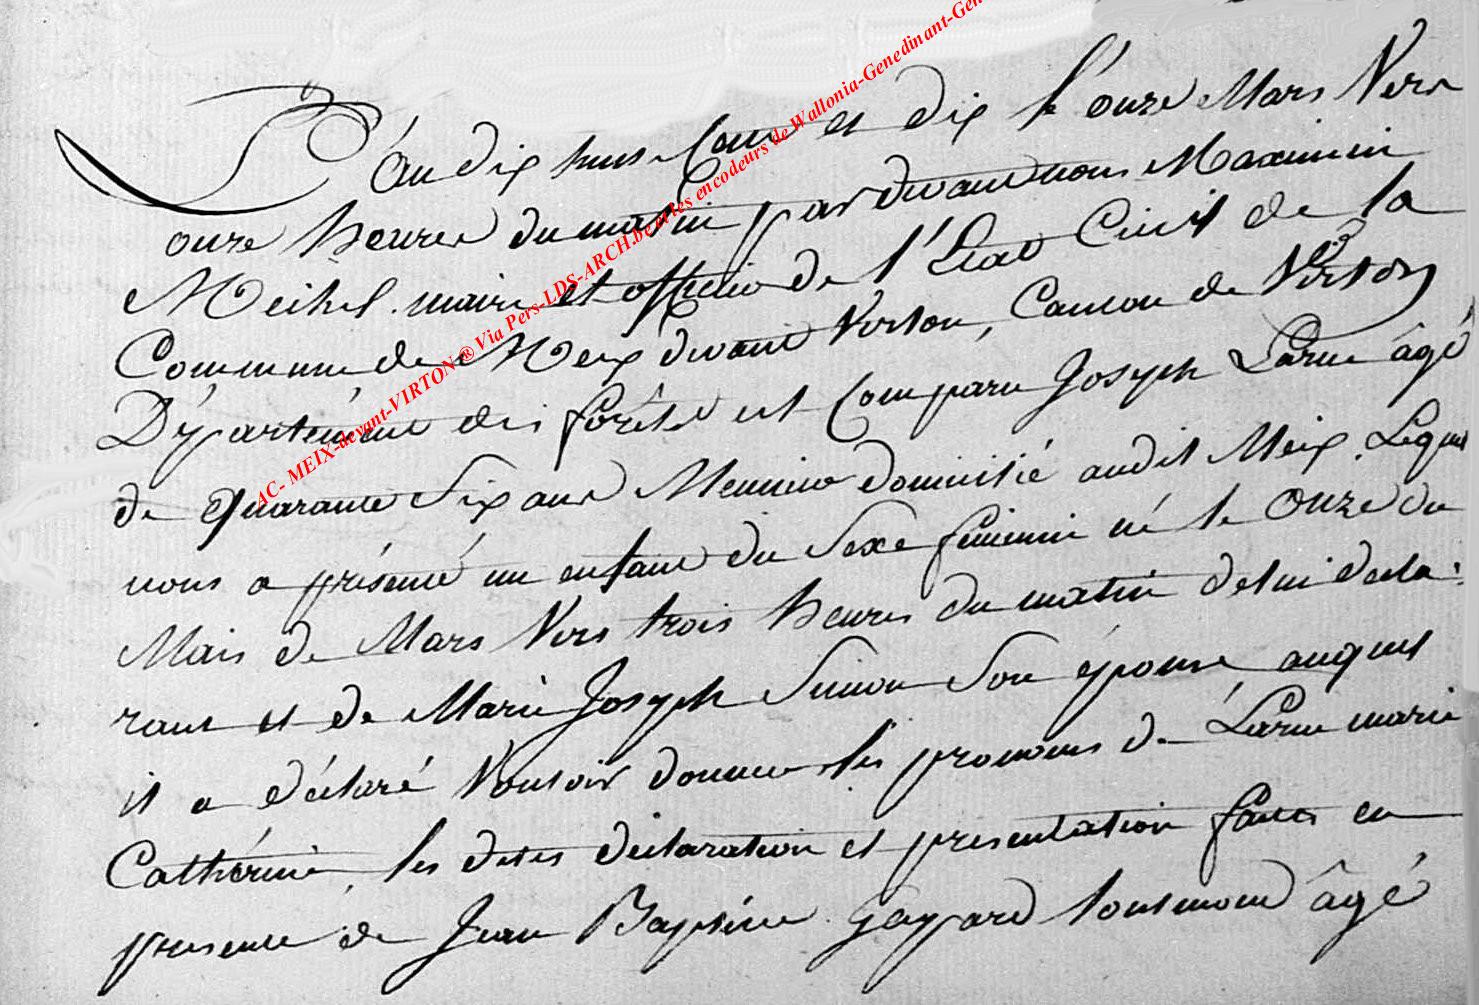 L'an dix huit Cent et dix le onze Mars Vers
onze heures du matin pardevant nous Maximin
Meihel maire et officier de l'Etat Civil de la
Commune de Meix devant Virton, Canton de Virton
Département des forêts est Comparu Joseph Larue âgé
de quarante Six ans Meunier domicilié audit Meix. Lequel
nous a présenté un enfant du Sexe féminin né le onze du
Mois de Mars Vers trois heures du matin de lui décla-
rant et de Marie Joseph Simon Son épouse auquel
il a déclaré Vouloir donner les prenoms de Larue marie
Cathérine, les dites déclaration et presentation faites en
presence de Jean Baptiste gaspard âgé
AC- MEIX-devant-VIRTON ® Via Pers-LDS-ARCH.be et les encodeurs de Wallonia-Genedinant-Gen